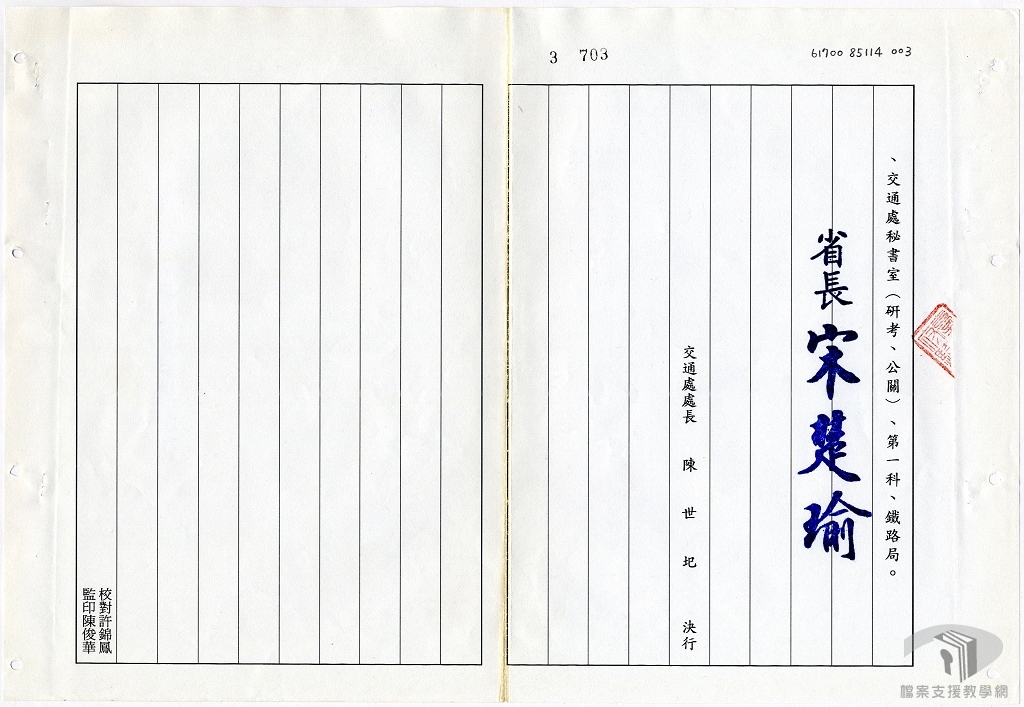 3 703
61700 85114 003
、交通處秘書室（研考、公關）、第一科、鐵路局。
省長宋楚瑜
交通處處長 陳世圯 決行
校對許錦鳳
監印陳俊華
檔案支援教學網